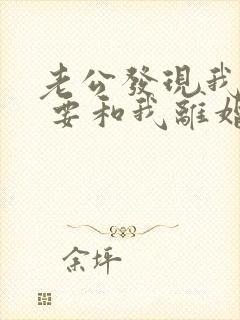 老公發現我
要和我離婚
余坪